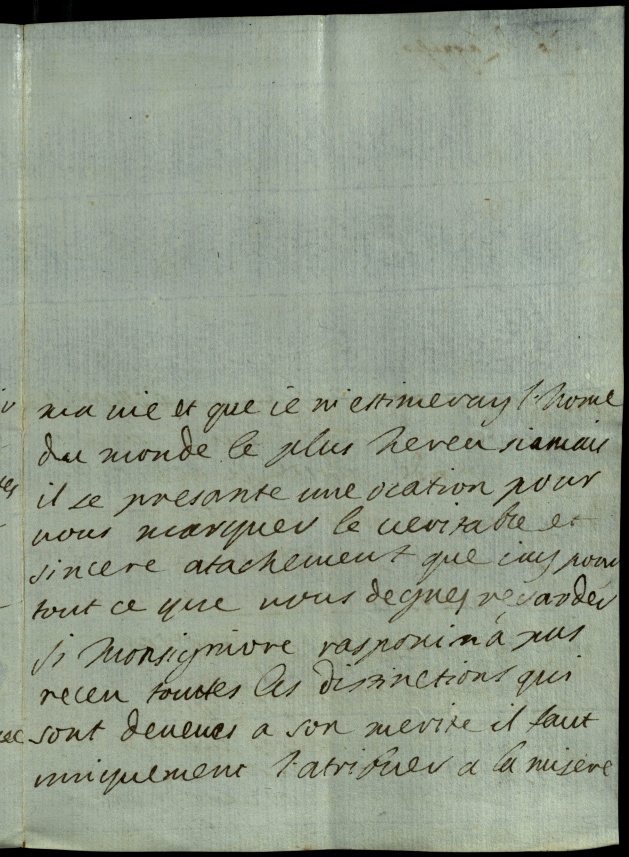 ma vie et que ie m'estimeray l'home
du monde le plus hereu siamais
il se presante une ocation pour
vous marquer le veritable et
sincere atachement que iay pour
tout ce que vous degnes regarder
si Monsigniore rasponi n'a pas
receu toutes les distinctions qui
sont deueues a son merite il faut
uniquement l'atribuer a la misere